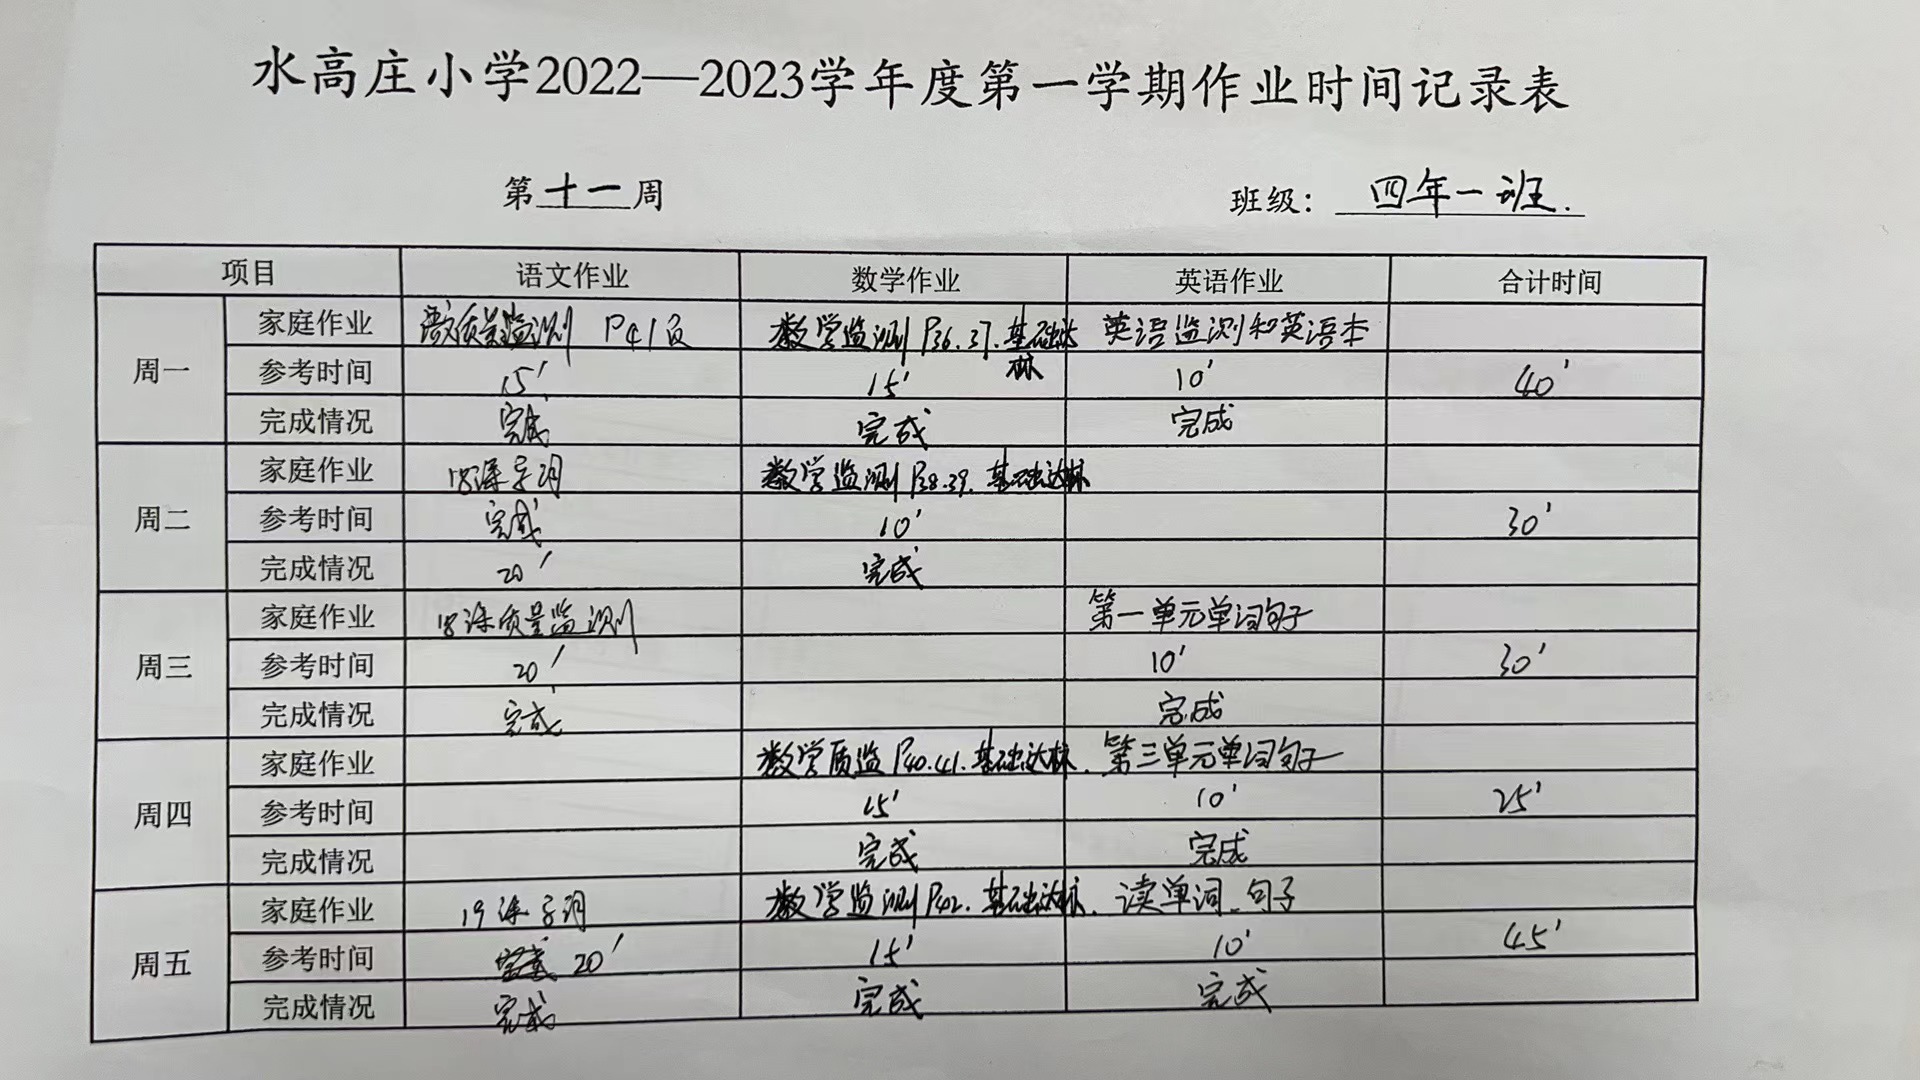 水高庄小学2022—2023学年度第一学期作业时间记录表
第十一周 班级：四年一班.
项目 语文作业 数学作业 英语作业 合计时间
周一
家庭作业 质量监测 P41页 数学监测P36.37.基础达标 英语监测和英语本
参考时间 15′ 15′ 10′ 40′
完成情况 完成 完成 完成
周二
家庭作业 18课字词 数学监测P38.39.基础达标
参考时间 完成 10′ 30′
完成情况 20′ 完成
周三
家庭作业 18课质量监测 第一单元单词句子
参考时间 20′ 10′ 30′
完成情况 完成 完成
周四
家庭作业 数学质监P40.41.基础达标. 第三单元单词句子
参考时间 15′ 10′ 25′
完成情况 完成 完成
周五
家庭作业 19课字词 数学监测P42.基础达标. 读单词、句子
参考时间 20′ 15′ 10′ 45′
完成情况 完成 完成 完成